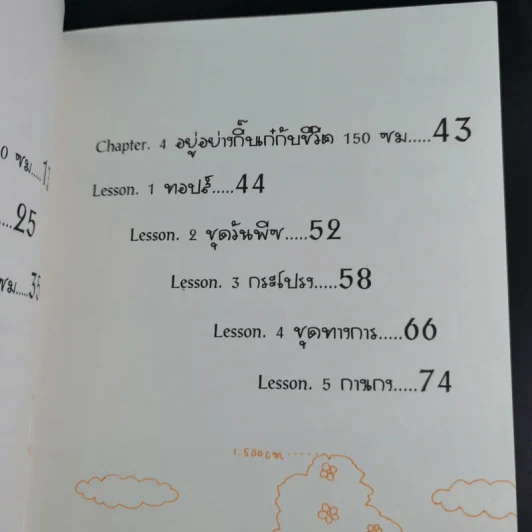 Chapter. 4 อยู่อย่างกิ๊บเก๋กับชีวิต 150 ซม.....43
Lesson. 1 ทอปส์.....44
Lesson. 2 ชุดวันพีซ.....52
Lesson. 3 กระโปรง.....58
Lesson. 4 ชุดทางการ.....66
Lesson. 5 กางเกง.....74
0 ซม....1
.....25
ซม.....35
1.500cm